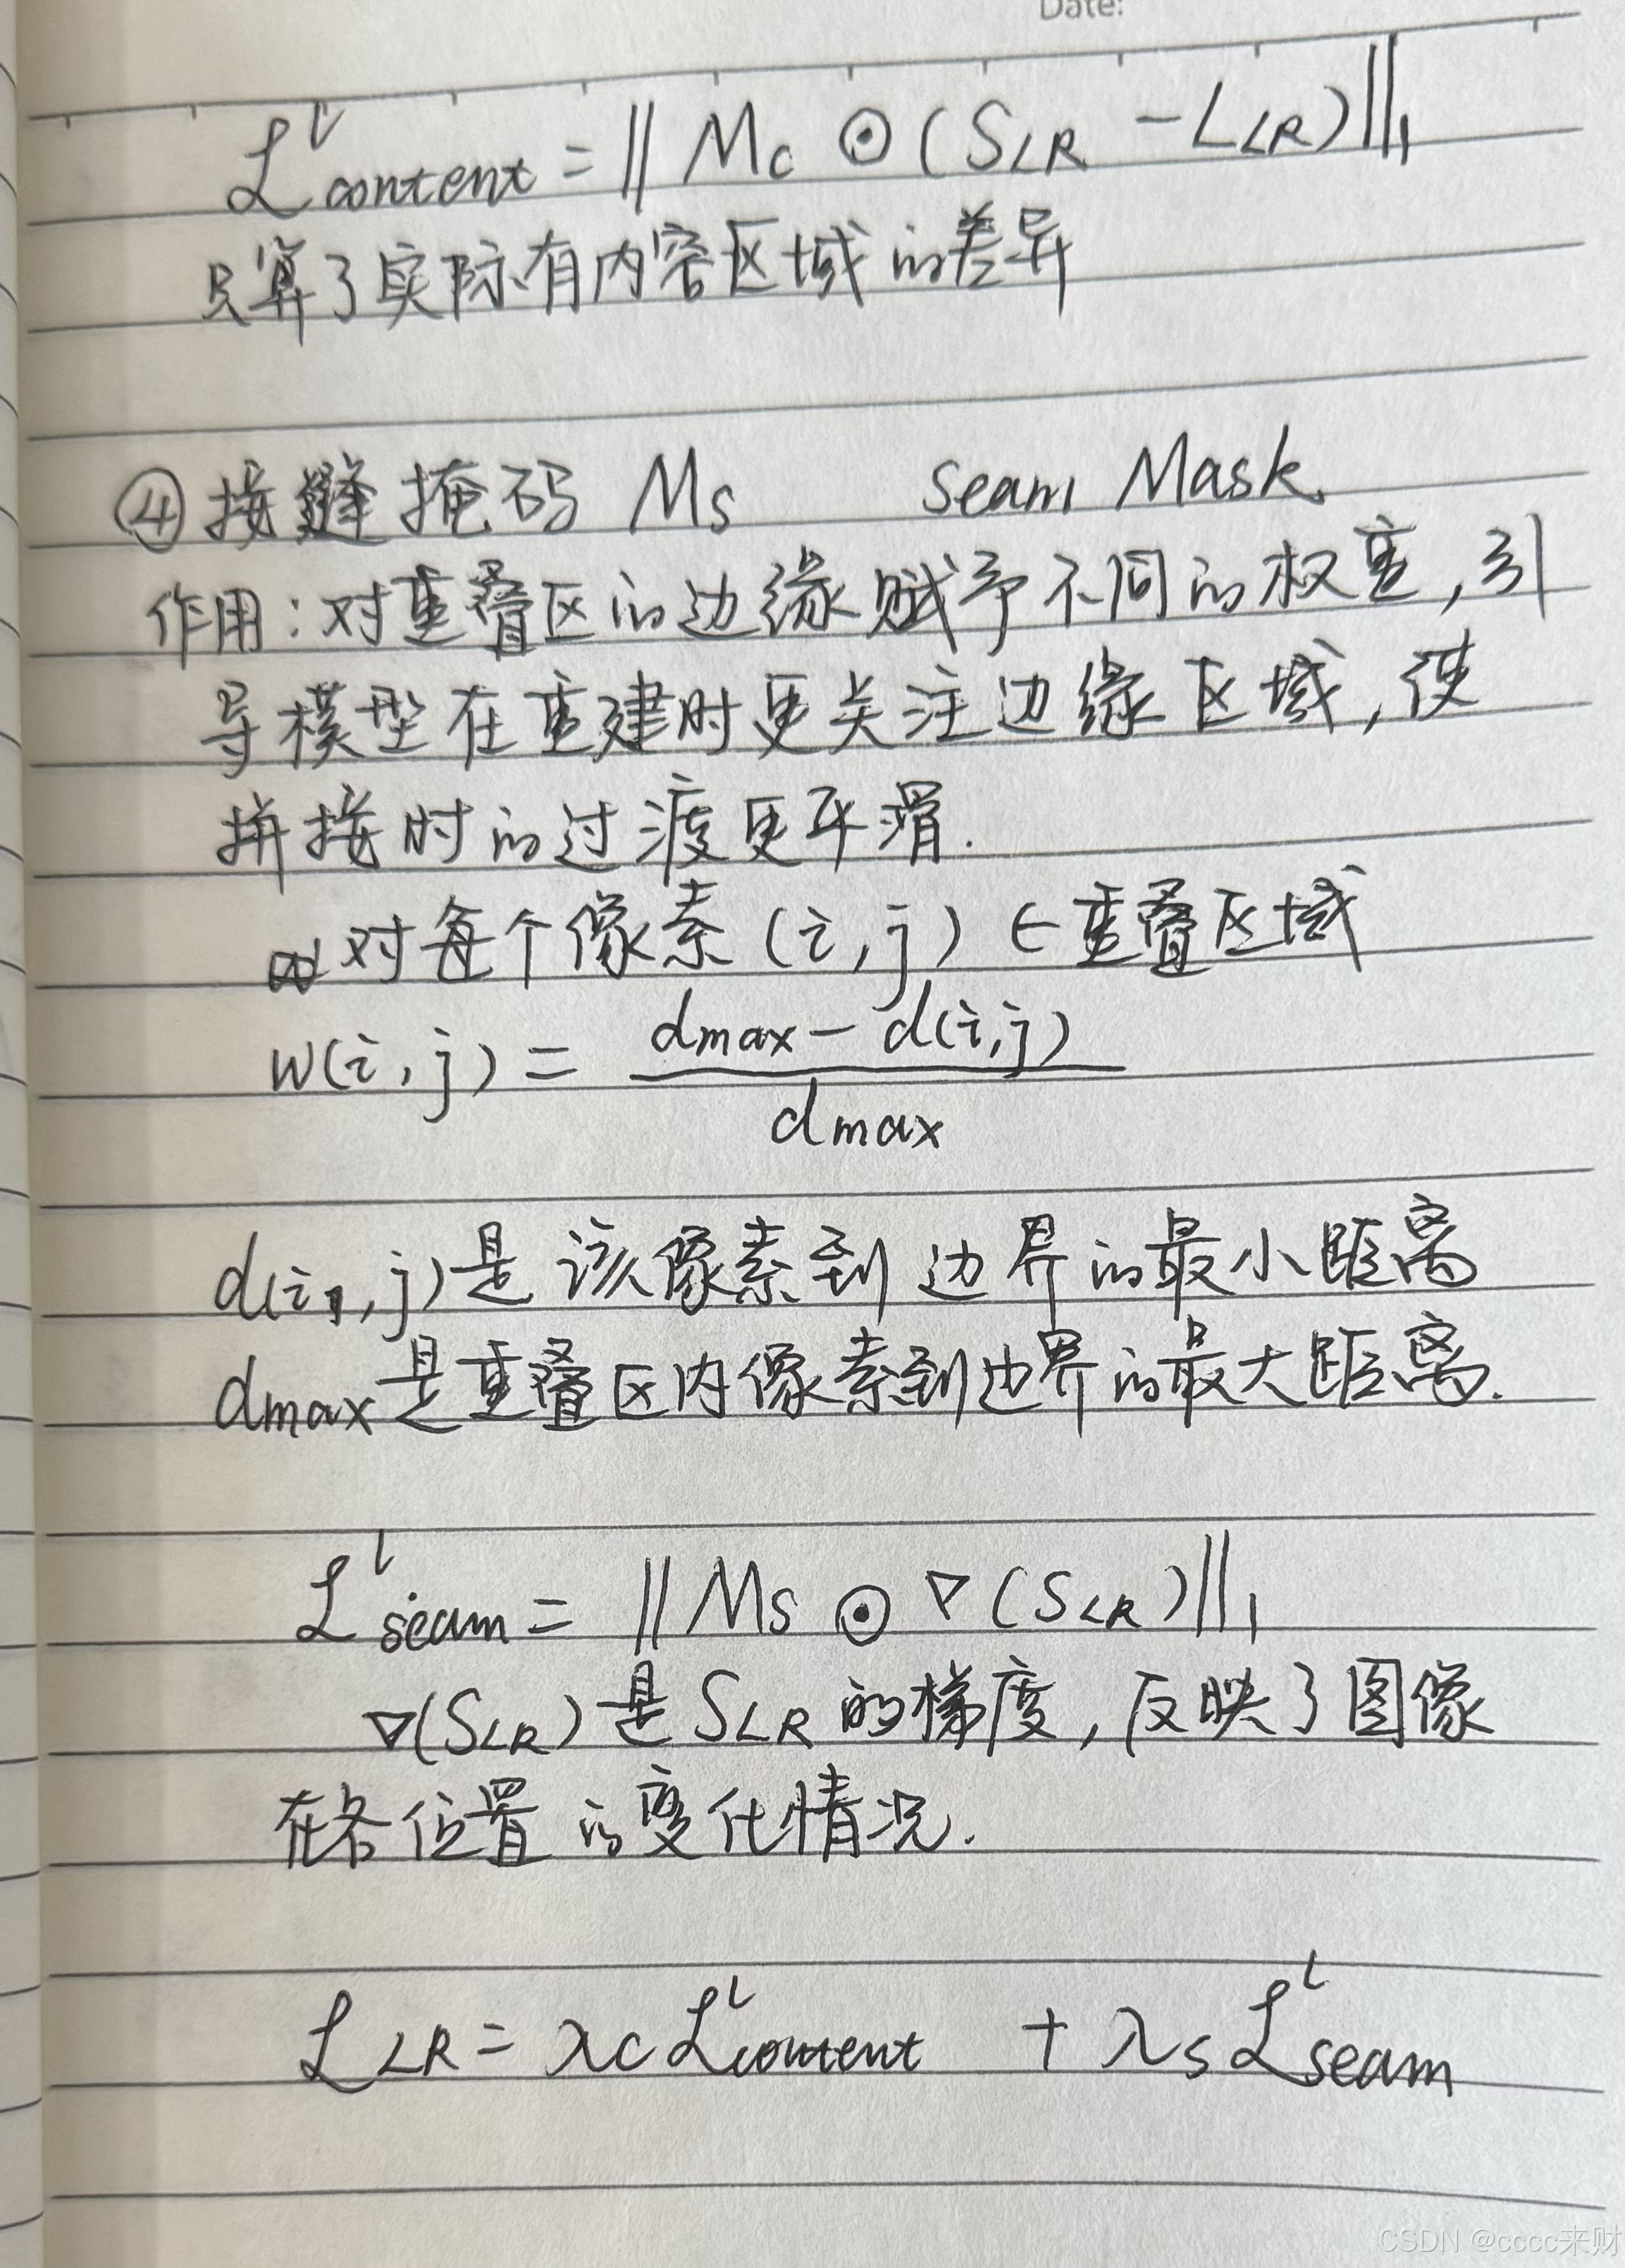 Date:
ℒˡcontent = ‖ Mc ⊙ (SLR - LLR) ‖₁
只算了实际有内容区域的差异
④接缝掩码 Ms seam Mask.
作用:对重叠区的边缘赋予不同的权重,引
导模型在重建时更关注边缘区域,使
拼接时的过渡更平滑.
对每个像素 (i,j) ∈ 重叠区域
w(i,j) = (dmax - d(i,j)) / dmax
d(i,j)是该像素到边界的最小距离
dmax是重叠区内像素到边界的最大距离.
ℒˡseam = ‖ Ms ⊙ ∇(SLR) ‖₁
∇(SLR)是SLR的梯度,反映了图像
在各位置的变化情况.
ℒLR = λcℒˡcontent + λsℒˡseam
CSDN @cccc来财